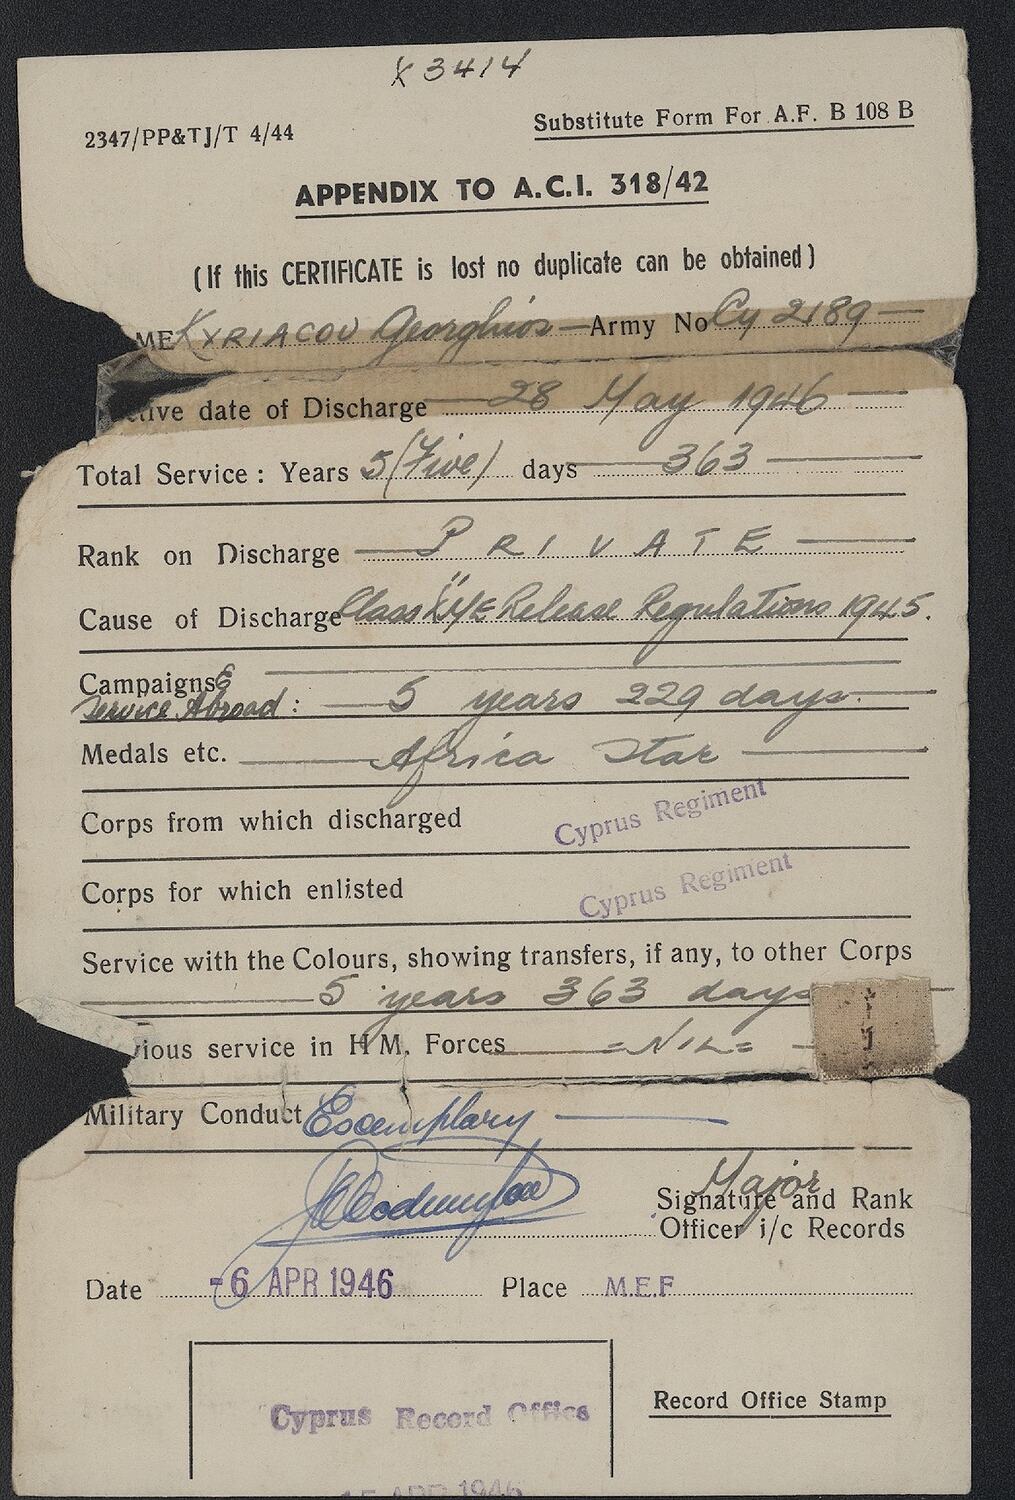 X3414
2347/PP&TJ/T 4/44
Substitute Form For A.F. B 108 B
APPENDIX TO A.C.I. 318/42
(If this CERTIFICATE is lost no duplicate can be obtained)
ME KYRIACOU Georghios Army No Cy 2189
ctive date of Discharge 28 May 1946
Total Service : Years 5 (Five) days 363
Rank on Discharge PRIVATE
Cause of Discharge Class Release Regulations 1945.
Campaigns &
Service Abroad : 5 years 229 days.
Medals etc. Africa Star
Corps from which discharged Cyprus Regiment
Corps for which enlisted Cyprus Regiment
Service with the Colours, showing transfers, if any, to other Corps
5 years 363 days
ious service in H M. Forces =NIL=
Military Conduct Exemplary
Major
Signature and Rank
Officer i/c Records
Date -6 APR 1946 Place M.E.F
Cyprus Record Office
Record Office Stamp
15 APR 1946